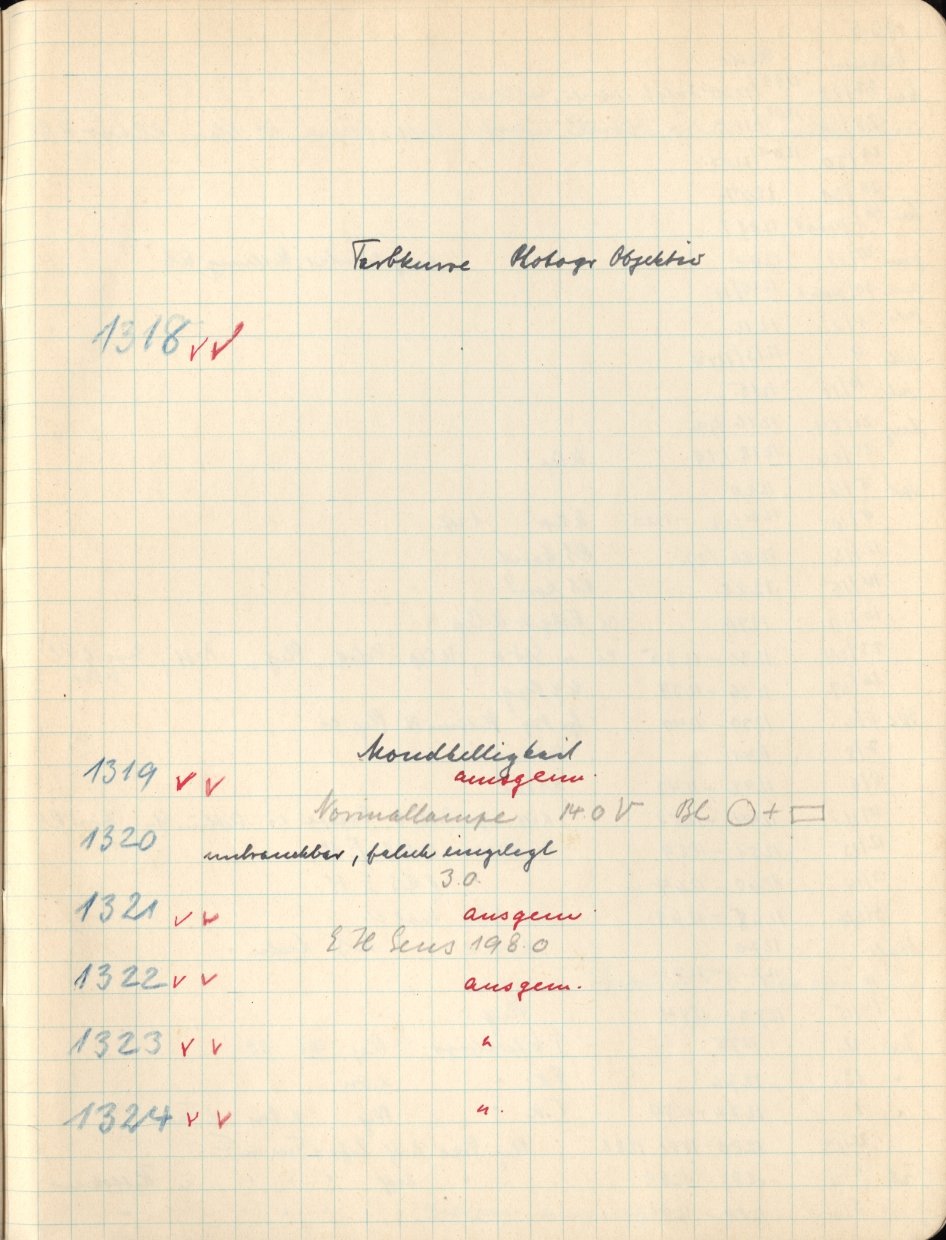 Farbkurve Photogr Objektiv
1318 ✓✓
Mondhelligkeit
1319 ✓✓ ausgem.
Normallampe 14.0 V Bl ○ + ▭
1320
unbrauchbar, falsch eingelegt
3.0.
1321 ✓✓ ausgem.
E H Sens 198.0
1322 ✓✓ ausgem.
1323 ✓✓ "
1324 ✓✓ ".